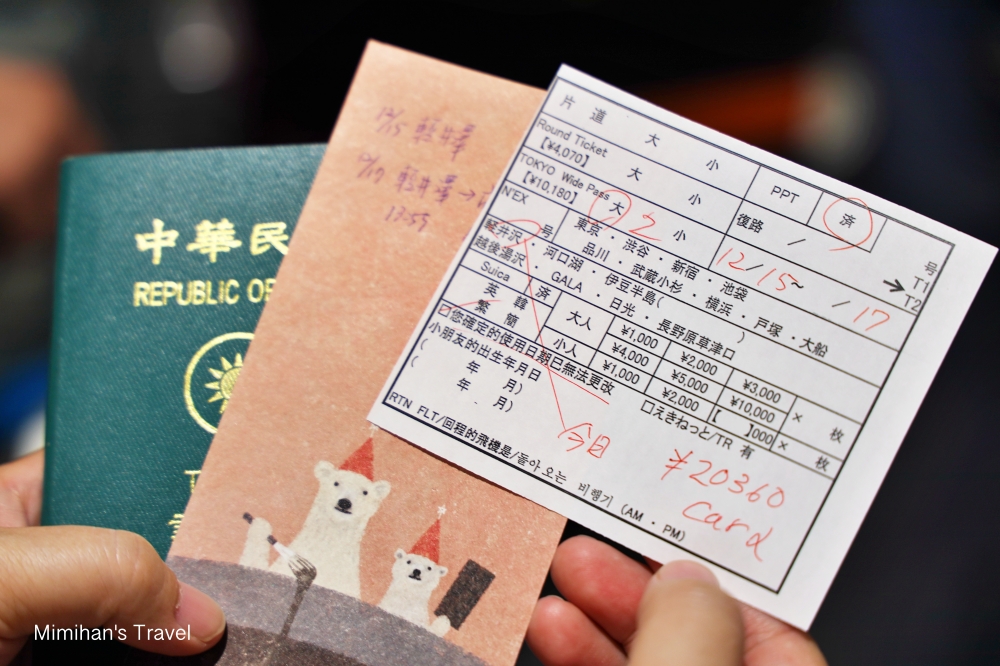 中華民
REPUBLIC OF
12/15 輕井澤
12/17 輕井澤→
13:59
片道 大 小
PPT 済
Round Ticket 大 小
【¥4,070】
復路 / 号
TOKYO Wide Pass 大 2 小
【¥10,180】
12/15~ /17
→ T1
T2
N'EX 号 東京・渋谷・新宿・池袋
品川・武蔵小杉・横浜・戸塚・大船
軽井沢・河口湖・伊豆半島( )
越後湯沢・GALA・日光・長野原草津口
Suica 済 大人 ¥1,000 ¥2,000 ¥3,000 × 枚
英 韓 ¥4,000 ¥5,000 ¥10,000
繁 簡 小人 ¥1,000 ¥2,000 【 】000 × 枚
您確定的使用日期已無法更改
□えきねっと/TR 有
小朋友的出生年月日
( 年 月)
( 年 月)
今日
¥20360
card
RTN FLT/回程的飛機是/돌아 오는 비행기 (AM・PM)
Mimihan's Travel